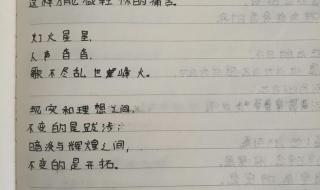 这样才能减轻你的痛苦。
灯火星星,
人声杳杳,
歌不尽乱世烽火。
现实和理想之间,
不变的是跋涉;
暗淡与辉煌之间,
不变的是开拓。